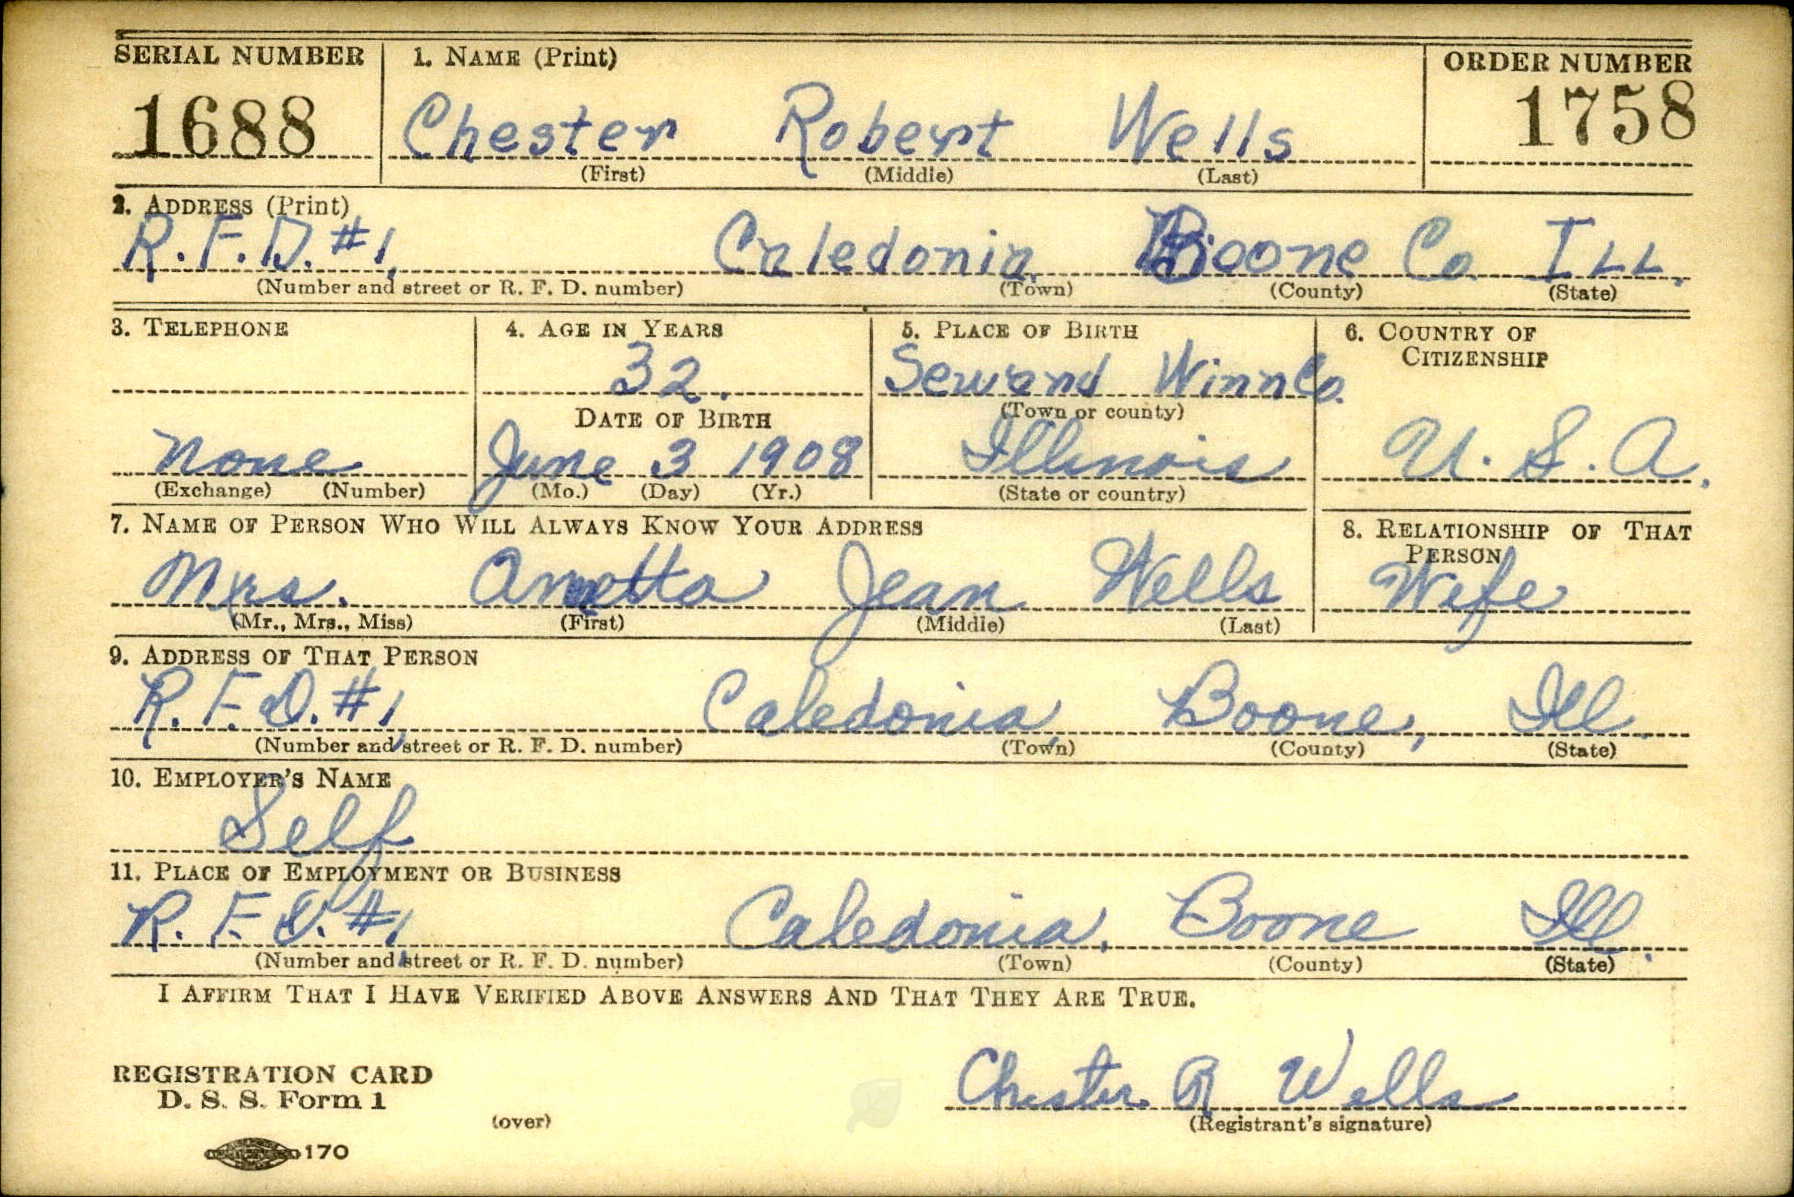 SERIAL NUMBER 1. NAME (Print) ORDER NUMBER
1688 Chester Robert Wells 1758
(First) (Middle) (Last)
2. ADDRESS (Print)
R.F.D. #1, Caledonia, Boone Co. ILL.
(Number and street or R. F. D. number) (Town) (County) (State)
3. TELEPHONE 4. AGE IN YEARS 5. PLACE OF BIRTH 6. COUNTRY OF CITIZENSHIP
32. Seward Winn Co.
DATE OF BIRTH (Town or county)
None June 3 1908 Illinois U.S.A.
(Exchange) (Number) (Mo.) (Day) (Yr.) (State or country)
7. NAME OF PERSON WHO WILL ALWAYS KNOW YOUR ADDRESS 8. RELATIONSHIP OF THAT PERSON
Mrs. Jean Wells Wife
(Mr., Mrs., Miss) (First) (Middle) (Last)
9. ADDRESS OF THAT PERSON
R.F.D. #1, Caledonia, Boone, Ill.
(Number and street or R. F. D. number) (Town) (County) (State)
10. EMPLOYER'S NAME
Self
11. PLACE OF EMPLOYMENT OR BUSINESS
R.F.D. #1, Caledonia, Boone Ill.
(Number and street or R. F. D. number) (Town) (County) (State)
I AFFIRM THAT I HAVE VERIFIED ABOVE ANSWERS AND THAT THEY ARE TRUE.
REGISTRATION CARD
D. S. S. Form 1 Chester R Wells
(over) (Registrant's signature)
170